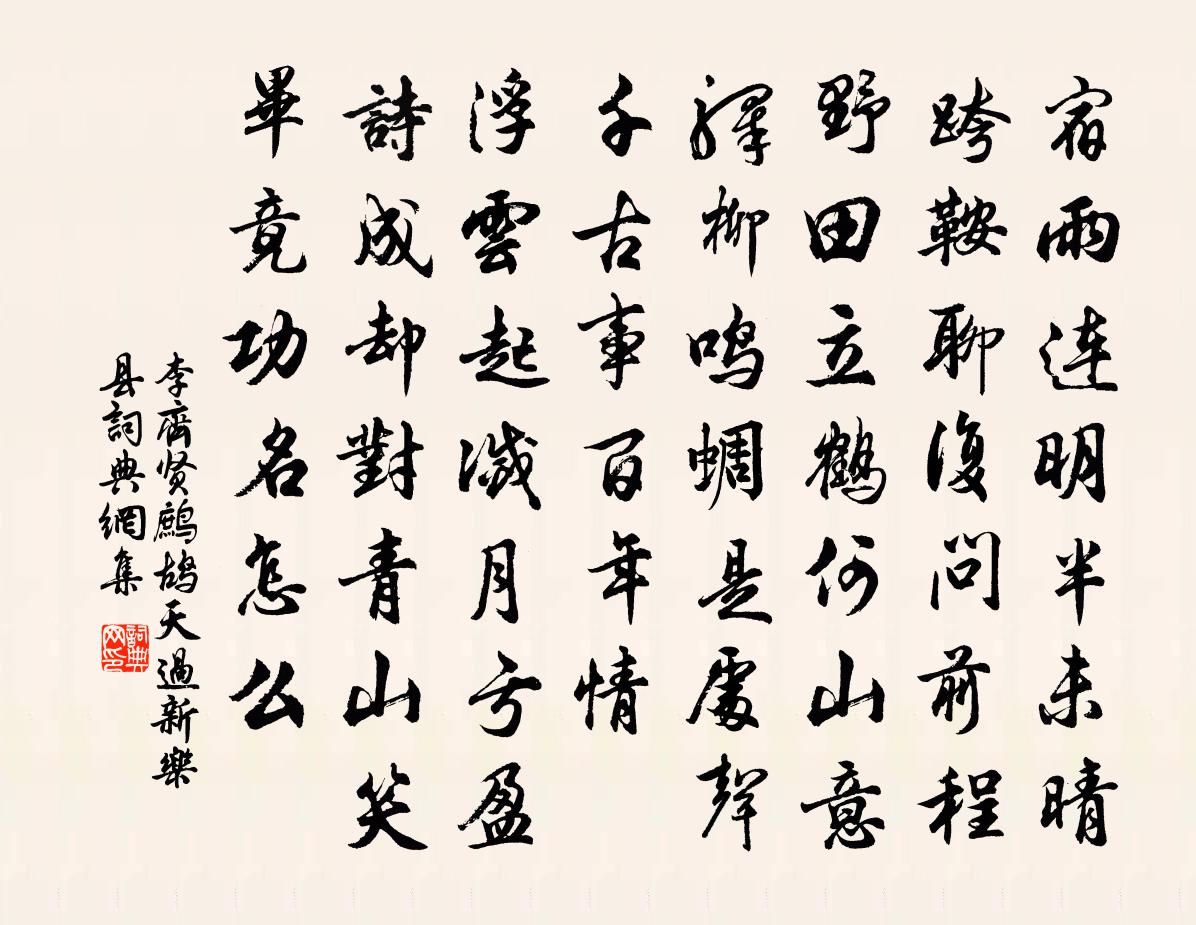 宿雨連明半未晴
跨鞍聊復問前程
野田立鶴何山意
驛柳鳴蜩是處聲
千古事百年情
浮雲起滅月亏盈
詩成却對青山笑
畢竟功名怎么
李齊贤鷓鴣天過新樂
县詞典網集
詞典网印